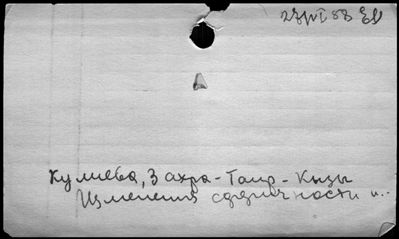 23/VI 53
Кулиева, Захра-Таир-Кызы
Изменения сферичности и..